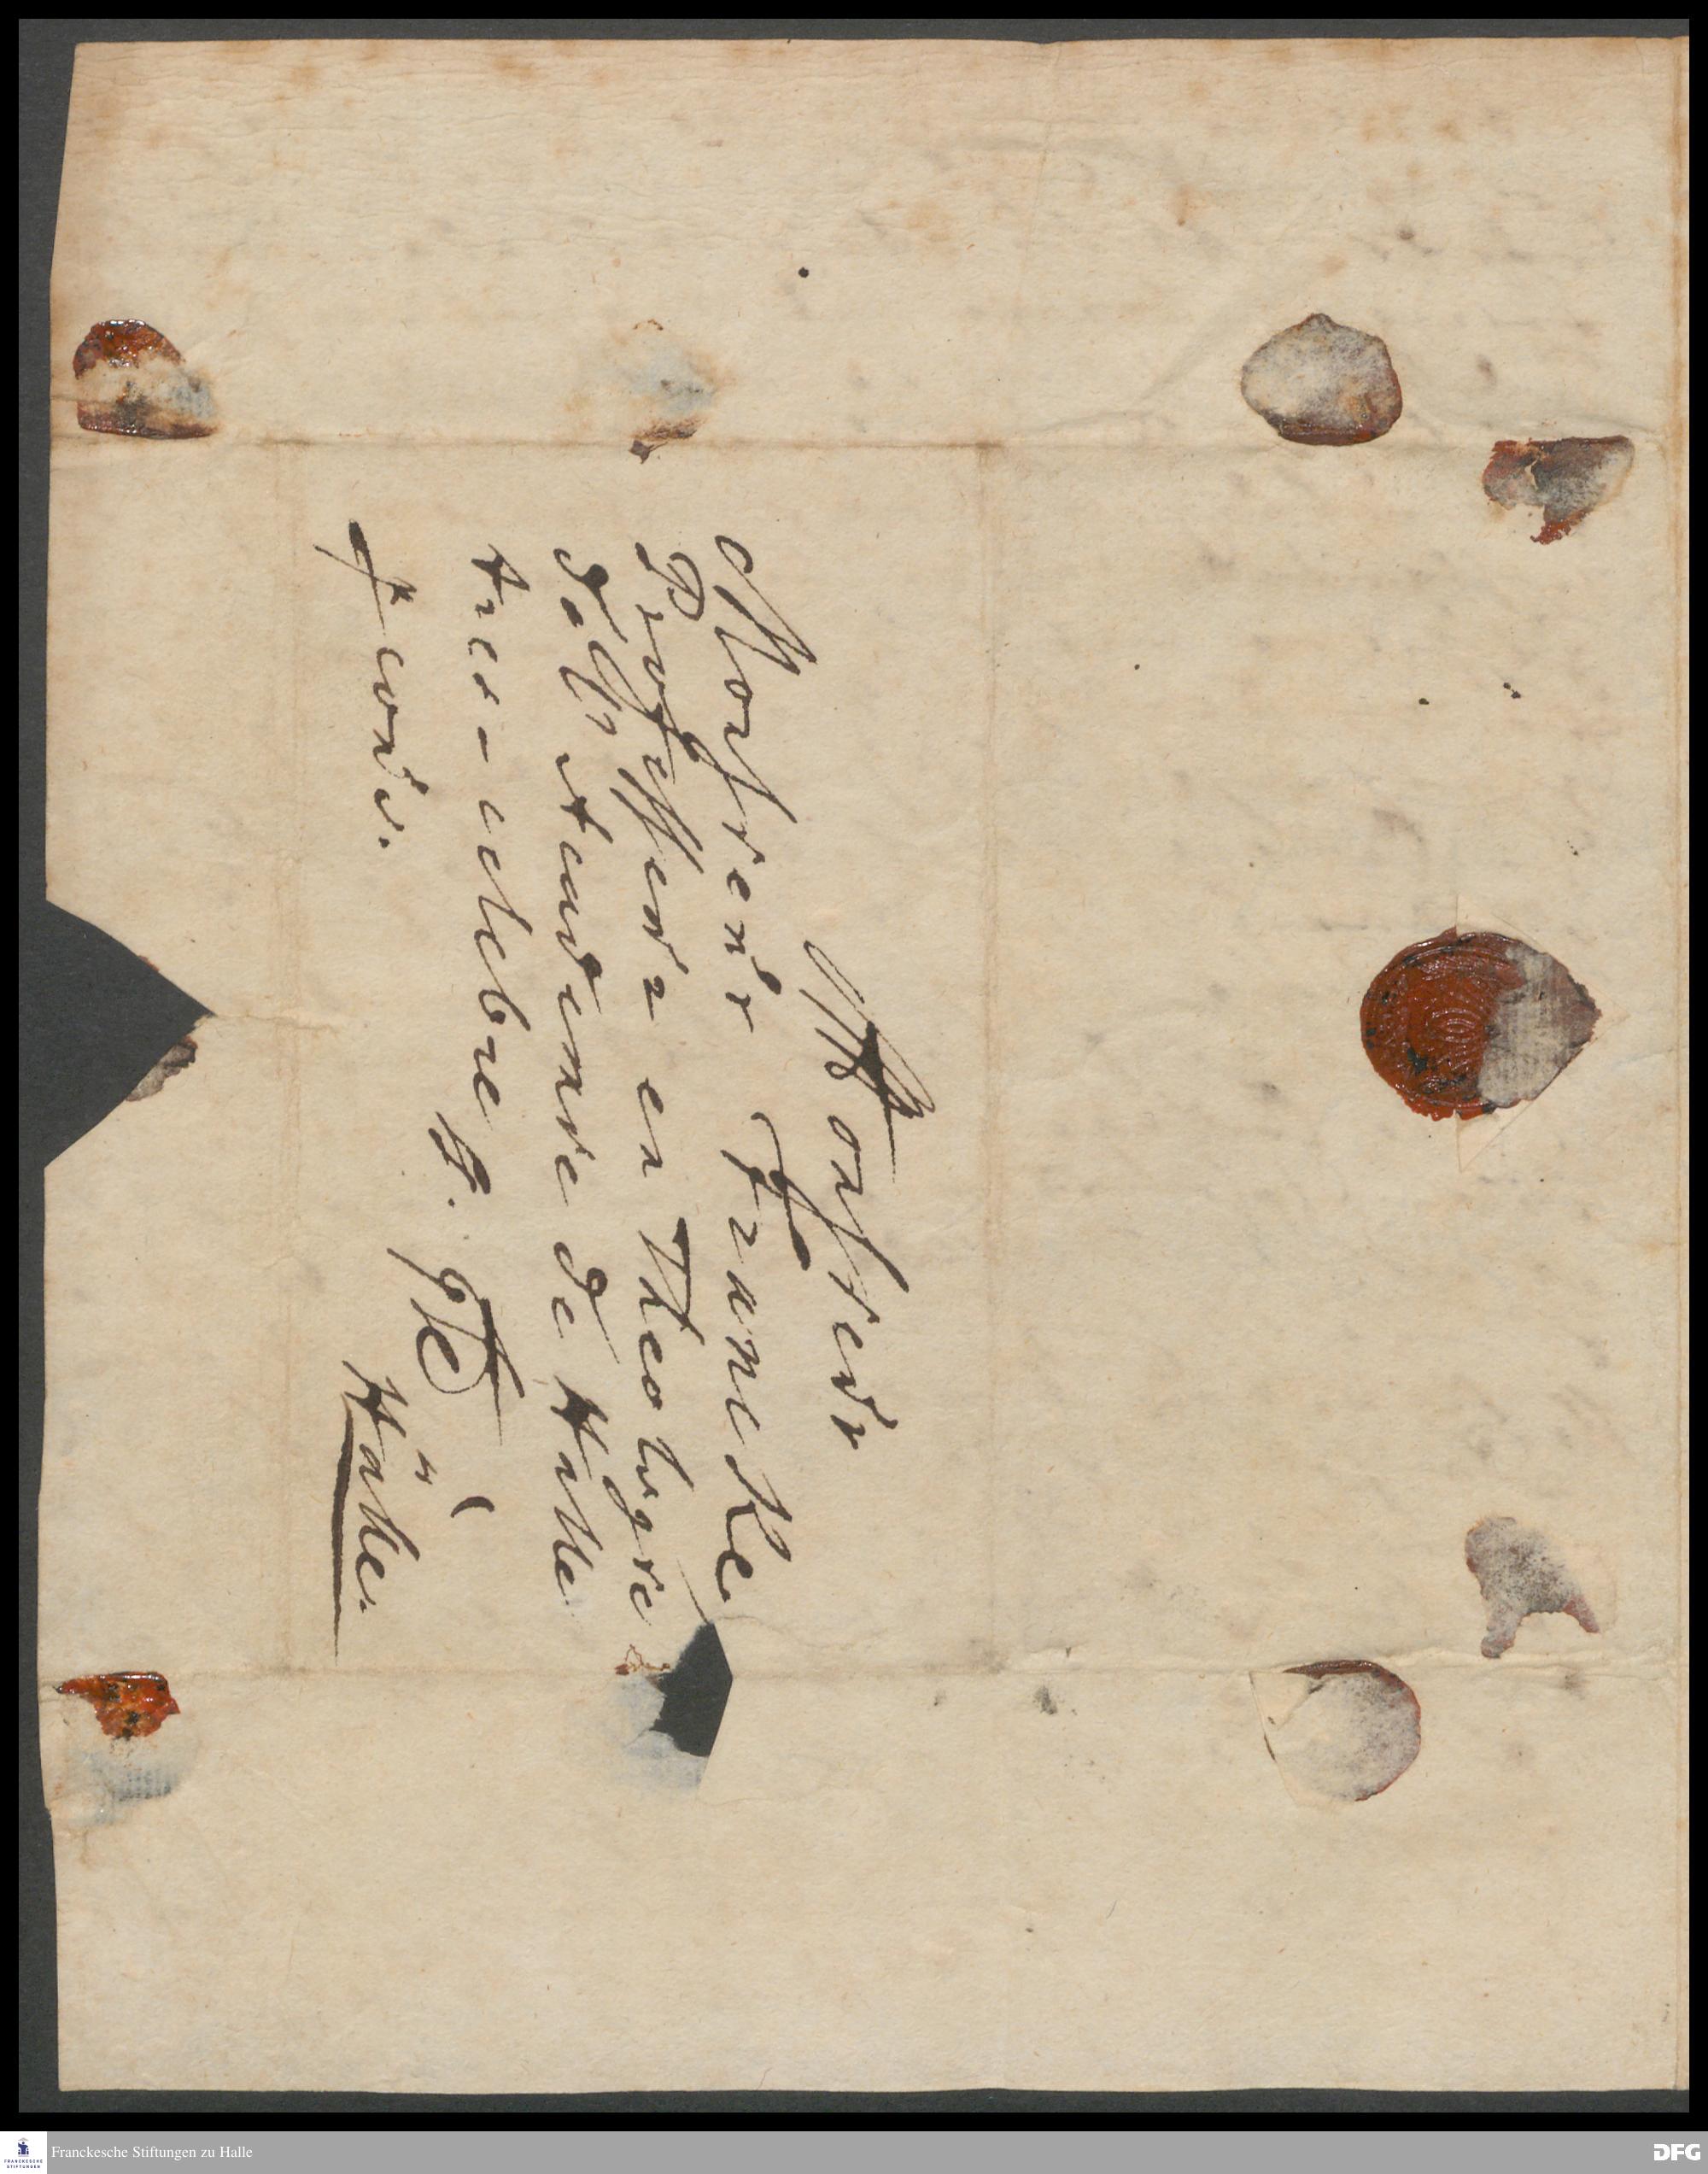 Monsieur
Monsieur Francke
Professeur en Theologie
Academie de Halle
tres-celebre
à
Halle.
FRANCKESCHE
STIFTUNGEN
Franckesche Stiftungen zu Halle
DFG